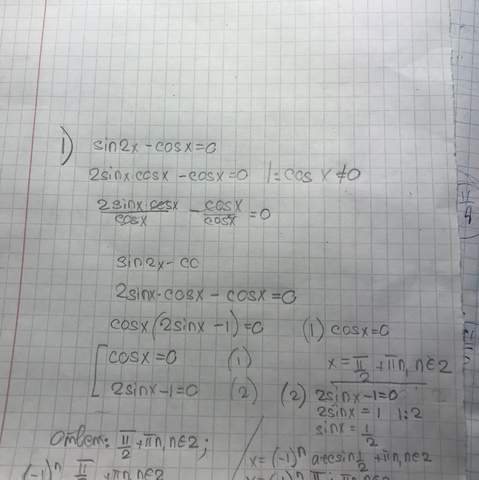 1) sin2x - cosx = 0
2sinx cosx - cosx = 0 |: cos x ≠ 0
2sinx·cosx/cosx - cosx/cosx = 0
sin2x - co
2sinx·cosx - cosx = 0
cosx(2sinx - 1) = 0
[ cosx = 0 (1)
2sinx - 1 = 0 (2)
(1) cosx = 0
x = π/2 + πn, n∈Z
(2) 2sinx - 1 = 0
2sinx = 1 |:2
sinx = 1/2
x = (-1)ⁿ arcsin 1/2 + πn, n∈Z
Ответ: π/2 + πn, n∈Z;